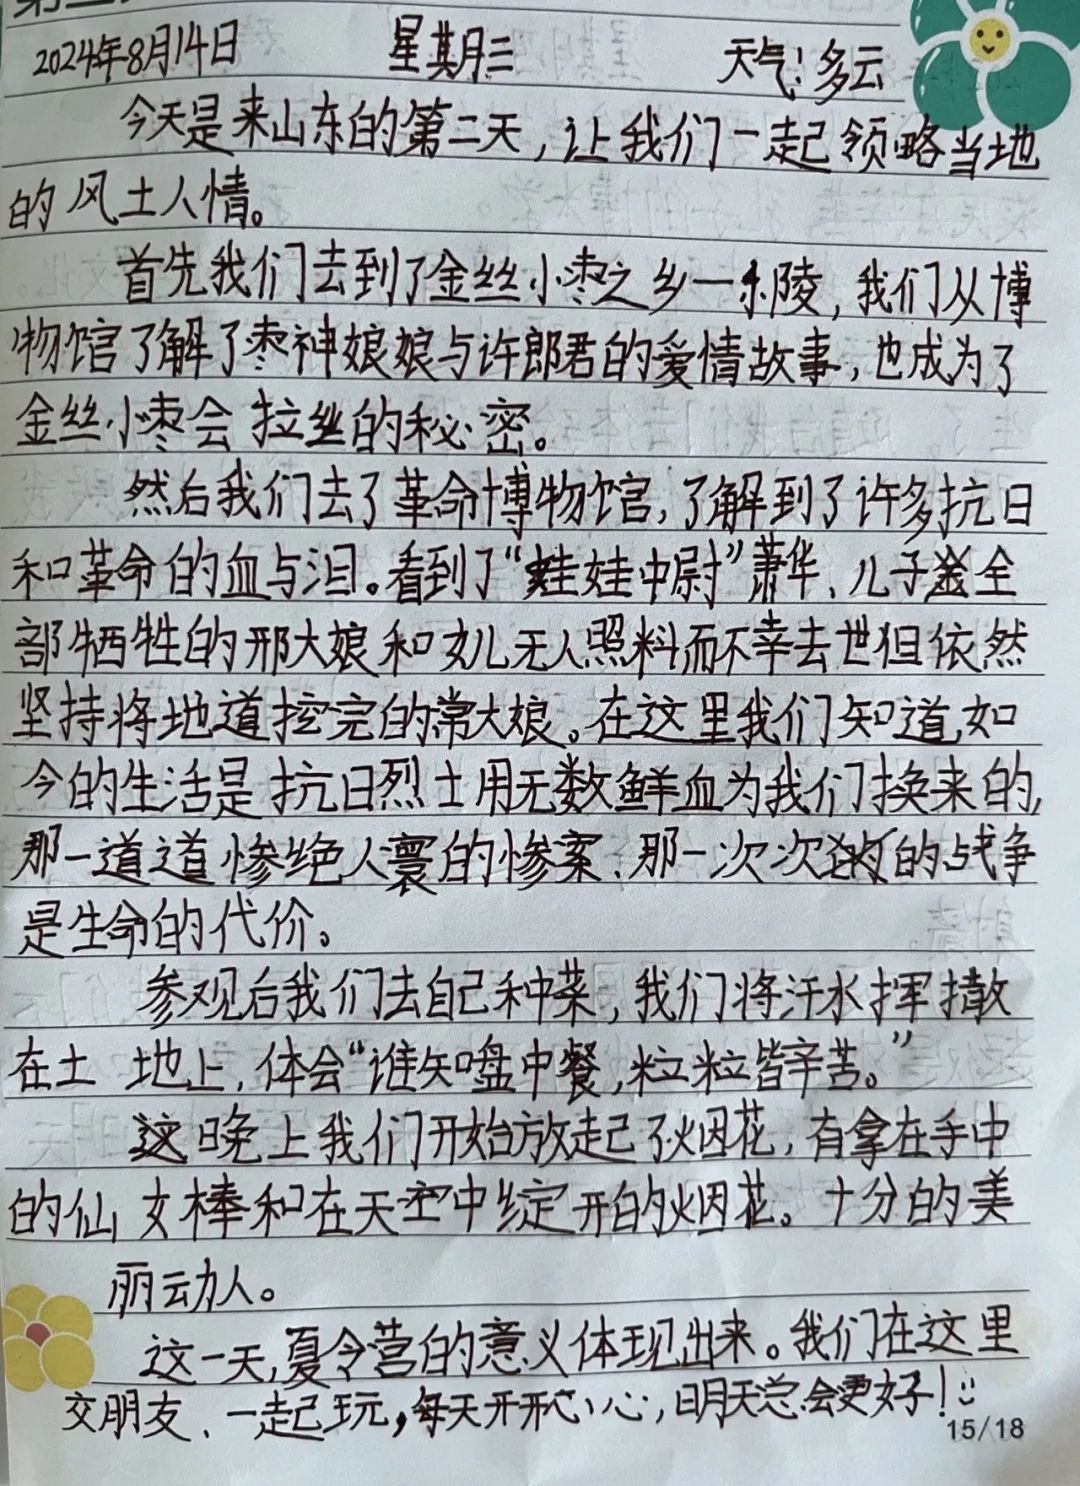 2024年8月14日 星期三 天气:多云
今天是来山东的第二天,让我们一起领略当地
的风土人情。
首先我们去到了金丝小枣之乡一乐陵,我们从博
物馆了解了枣神娘娘与许郎君的爱情故事,也成为了
金丝小枣会拉丝的秘密。
然后我们去了革命博物馆,了解到了许多抗日
和革命的血与泪。看到了“娃娃中尉”萧华、儿子全
部牺牲的邢大娘和女儿无人照料而不幸去世但依然
坚持将地道挖完的常大娘。在这里我们知道,如
今的生活是抗日烈士用无数鲜血为我们换来的,
那一道道惨绝人寰的惨案、那一次次的战争
是生命的代价。
参观后我们去自己种菜,我们将汗水挥撒
在土地上,体会“谁知盘中餐,粒粒皆辛苦。”
这晚上我们开始放起了烟花,有拿在手中
的仙女棒和在天空中绽开的烟花。十分的美
丽动人。
这一天,夏令营的意义体现出来。我们在这里
交朋友、一起玩,每天开开心心,明天总会更好!
15/18